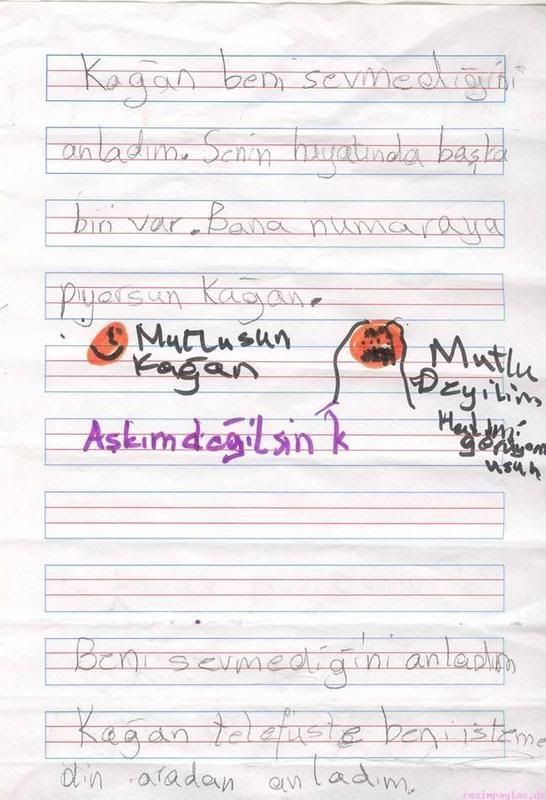 Kağan beni sevmediğini
anladım. Senin hayatında başka
biri var. Bana numaraya
pıyorsun Kağan.
Mutlusun
Kağan
Mutlu
Deyilim
Halimi
görüyorm
usun
Aşkım değilsin k
Beni sevmediğini anladım
Kağan telefüste beni isteme
din aradan anladım.
resimpaylas.de